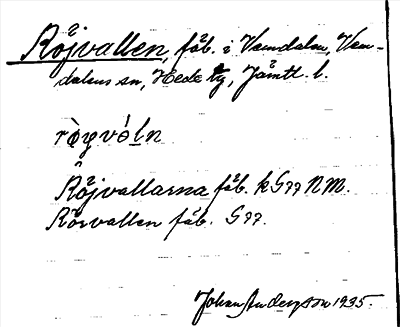 Röjvallen, fäb. i Vemdalen, Vem-
dalens sn, Hede tg, Jämtl. l.
Röjvallarna fäb. k G77 NM.
Rörvallen fäb. G77.
Johan Anderzon 1935.